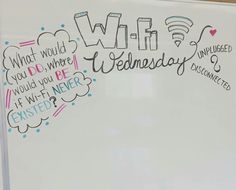 What would
you DO, where
would you BE
if Wi-Fi NEVER
EXISTED?
Wi-Fi
Wednesday
UNPLUGGED
&
DISCONNECTED